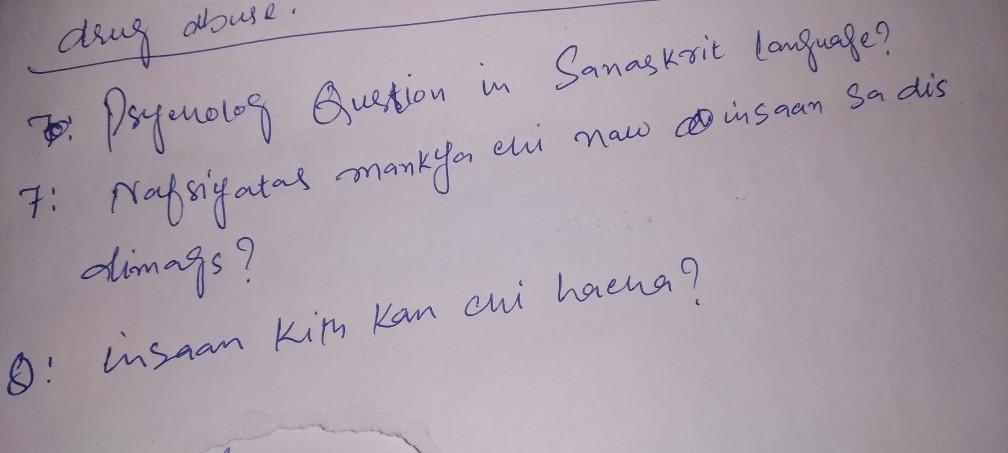 drug abuse.
7: Psycholog Question in Sanaskrit language?
7: Nafsiyatas mankya chi naw insaan sa dis
dimags?
8: insaan kith kan chi hacha?